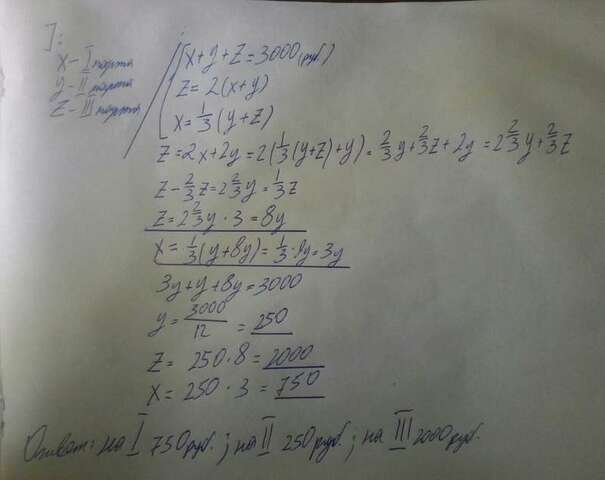 ]:
x - I парта
y - II парта
z - III парта
x+y+z=3000(руб.)
z = 2(x+y)
x = 1/3 (y+z)
z = 2x+2y = 2(1/3(y+z)+y) = 2/3y+2/3z+2y = 2 2/3y+2/3z
z - 2/3z = 2 2/3y = 1/3z
z = 2 2/3y · 3 = 8y
x = 1/3(y+8y) = 1/3 · 9y = 3y
3y+y+8y = 3000
y = 3000/12 = 250
z = 250·8 = 2000
x = 250 · 3 = 750
Ответ: на I 750руб.; на II 250руб.; на III 2000руб.